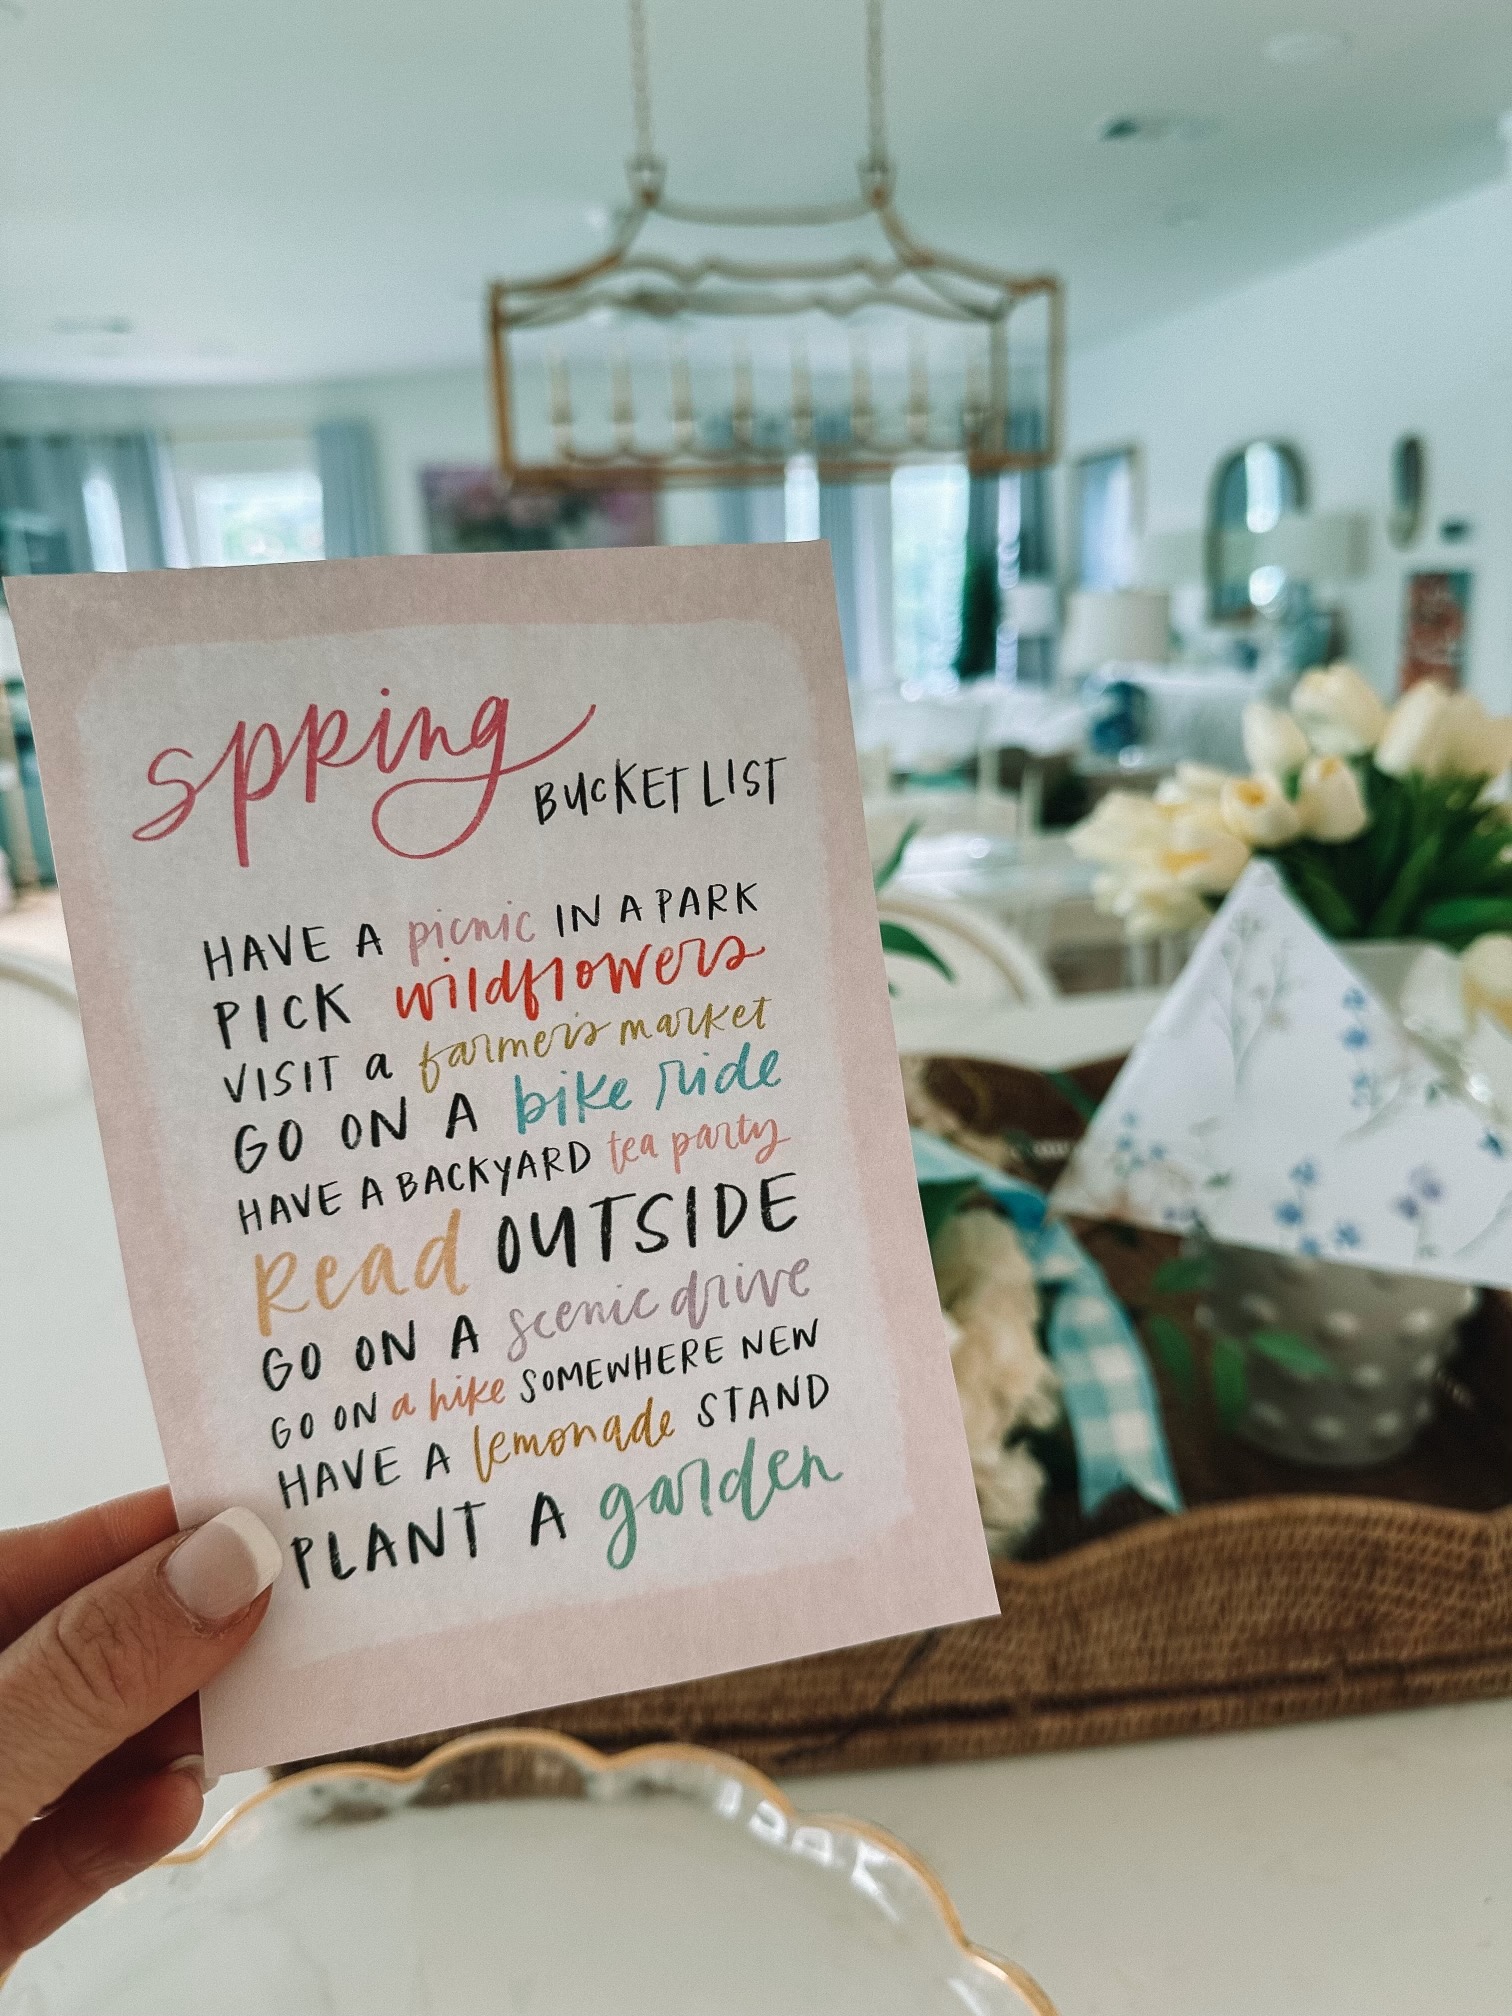 spring
BUCKET LIST
HAVE A picnic IN A PARK
PICK wildflowers
VISIT a farmer's market
GO ON A bike ride
HAVE A BACKYARD tea party
Read OUTSIDE
GO ON A scenic drive
GO ON a hike SOMEWHERE NEW
HAVE A lemonade STAND
PLANT A garden